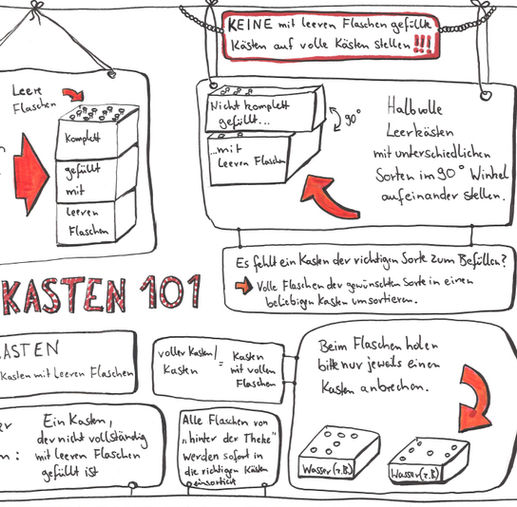 KEINE mit leeren Flaschen gefüllte
Kästen auf volle Kästen stellen!!!
Leere
Flaschen
Komplett
gefüllt
mit
leeren
Flaschen
Nicht komplett
gefüllt...
...mit
leeren Flaschen
90°
Halbvolle
Leerkästen
mit unterschiedlichen
Sorten im 90° Winkel
aufeinander stellen.
Es fehlt ein Kasten der richtigen Sorte zum Befüllen?
Volle Flaschen der gewünschten Sorte in einen
beliebigen Kasten umsortieren.
KASTEN 101
KASTEN
Kasten mit leeren Flaschen
voller Kasten/
Kasten
=
Kasten
mit vollen
Flaschen
Beim Flaschen holen
bitte nur jeweils einen
Kasten anbrechen.
Wasser (z.B.)
Wasser (z.B.)
Ein Kasten,
der nicht vollständig
mit leeren Flaschen
gefüllt ist
Alle Flaschen von
„hinter der Theke"
werden sofort in
die richtigen Kästen
einsortiert